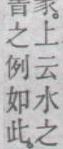 象。上云水之
皆之例如此。